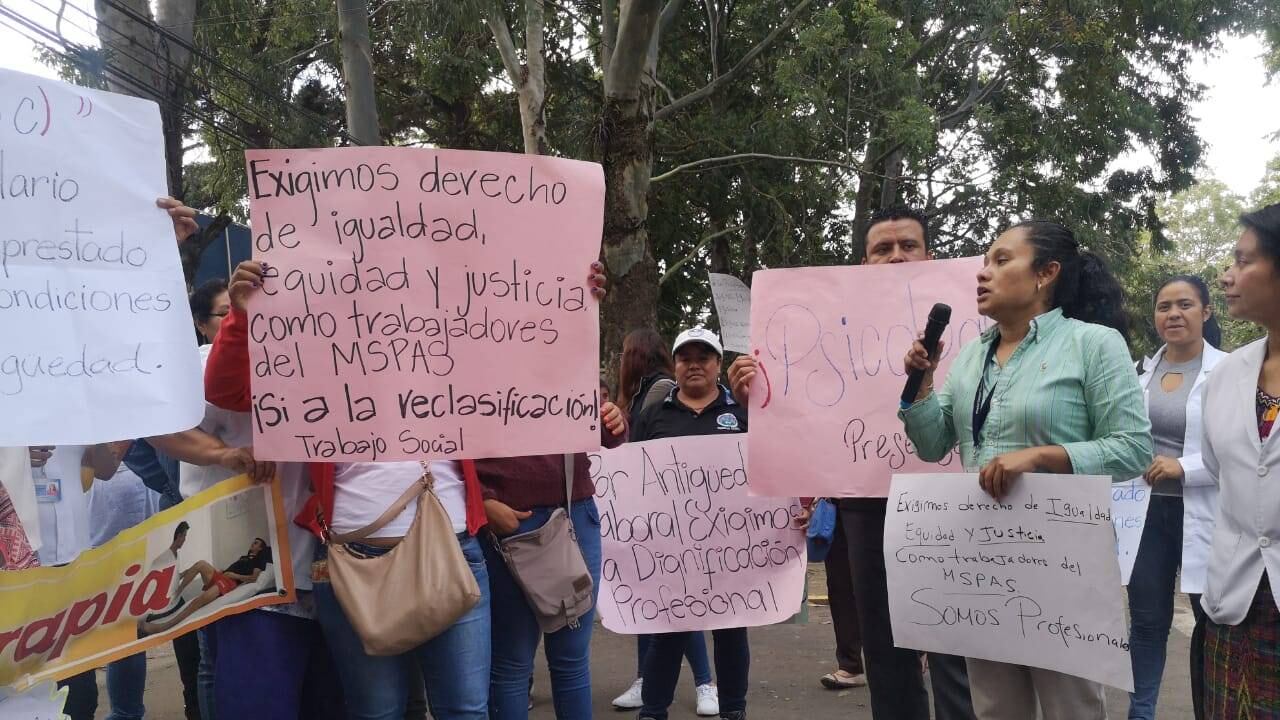 C) "
lario
prestado
condiciones
güedad.
Exigimos derecho
de igualdad,
equidad y justicia,
como trabajadores
del MSPAS
¡Si a la reclasificación!
Trabajo Social
rapia
Por Antigüedad
laboral Exigimos
la Dignificación
Profesional
¡Psicolog
Prese
Exigimos derecho de Igualdad
Equidad y Justicia
Como trabajadores del
MSPAS.
Somos Profesionales